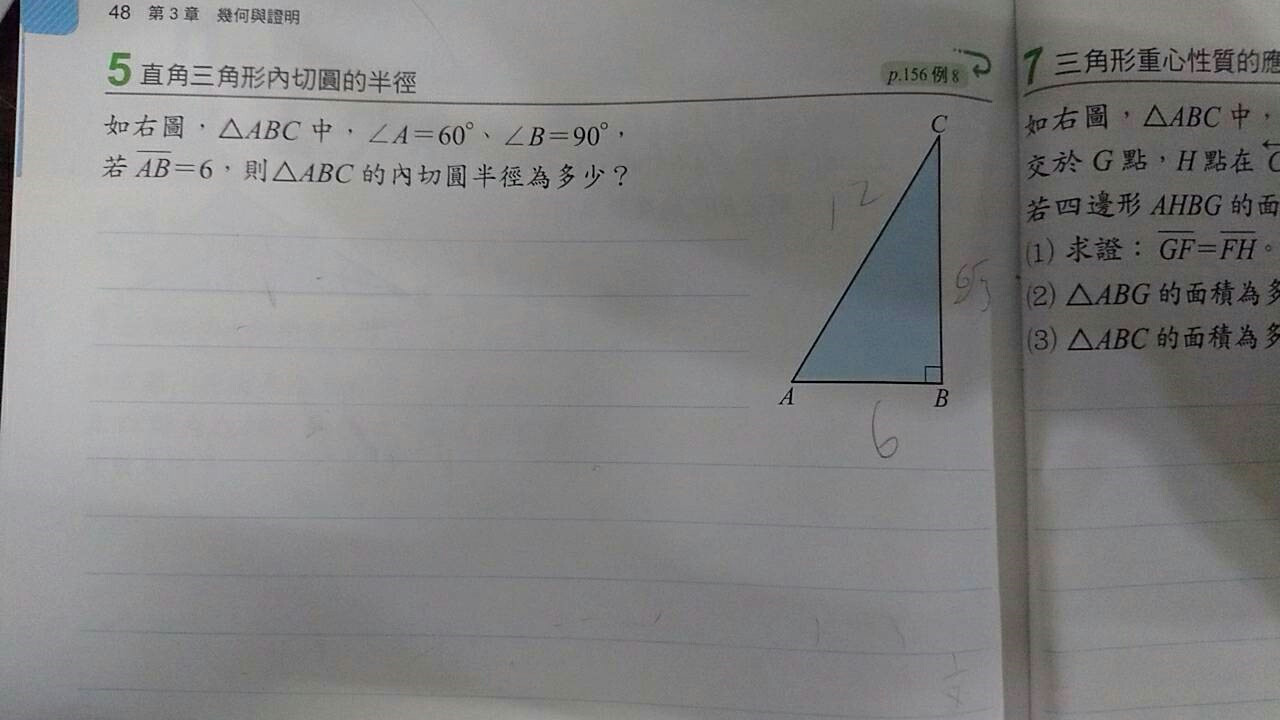 48 第3章 幾何與證明
5 直角三角形內切圓的半徑
p.156 例8
如右圖，△ABC 中，∠A=60°、∠B=90°，
若 AB=6，則△ABC 的內切圓半徑為多少？
C
12
6√3
A
B
6
1
4
7 三角形重心性質的應
如右圖，△ABC 中，
交於 G 點，H 點在 C
若四邊形 AHBG 的面
(1) 求證：GF=FH。
(2) △ABG 的面積為多
(3) △ABC 的面積為多